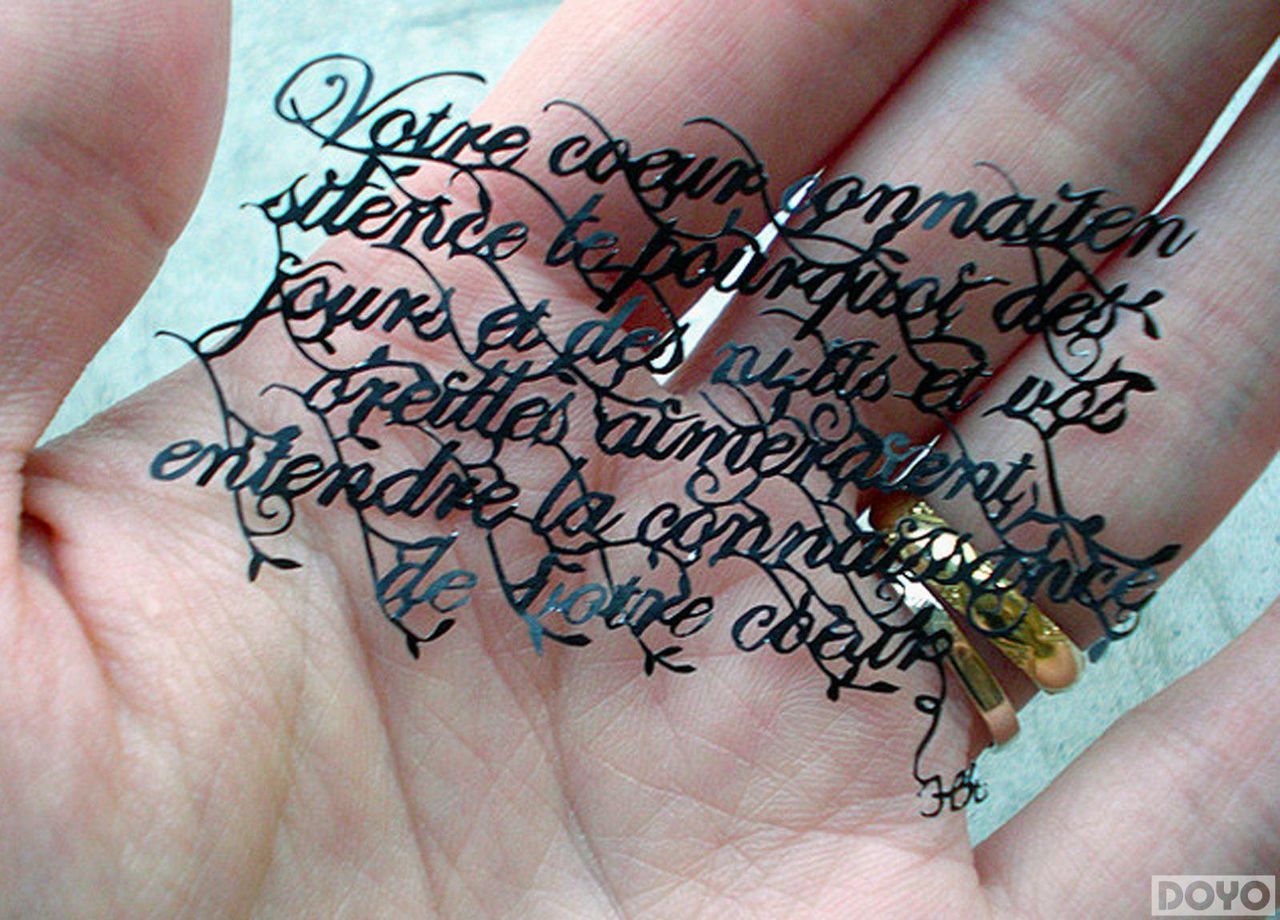 Votre coeur connait en
silence le pourquoi des
jours et des nuits et vos
oreilles aimeraient,
entendre la connaissance
de votre coeur
DOYO